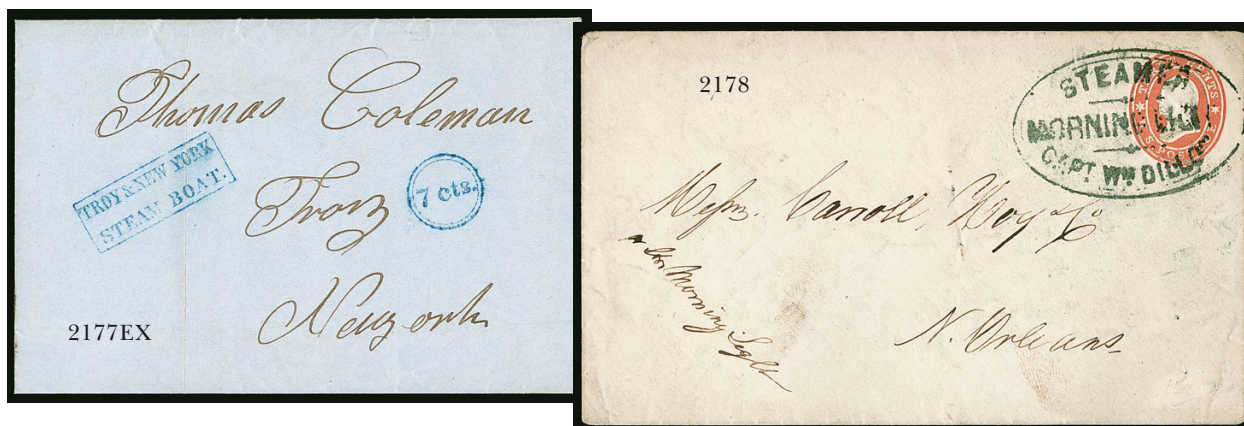 Thomas Coleman
TROY & NEW YORK
STEAM BOAT.
7 cts.
Troy
New york
2177EX
2178
STEAMER
MORNING LIGHT
CAPT WM DILLON
Messrs. Carroll, Hoy & Co
pr Str Morning Light
N. Orleans